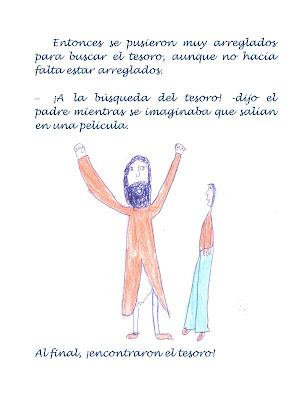 Entonces se pusieron muy arreglados
para buscar el tesoro, aunque no hacía
falta estar arreglados.
– ¡A la búsqueda del tesoro! -dijo el
padre mientras se imaginaba que salían
en una película.
Al final, ¡encontraron el tesoro!